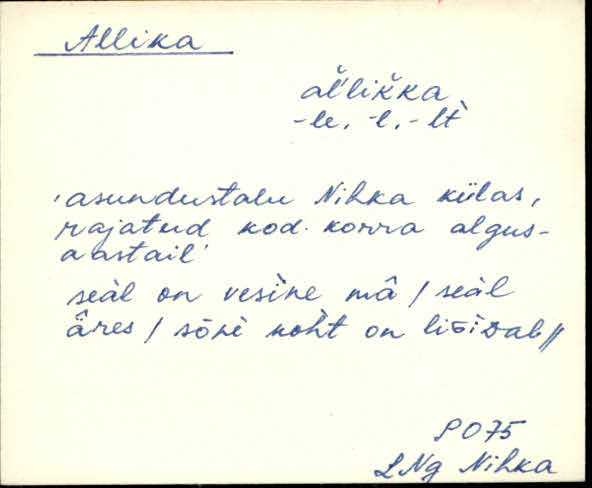 Allika
al̆'lik̆ka
-le, -l, -lt̀
'asundustalu Nihka külas,
rajatud kod. korra algus-
aastail'
seàl on vesìne mâ / seàl
âres / sõǹi koht on
PO75
LNg Nihka